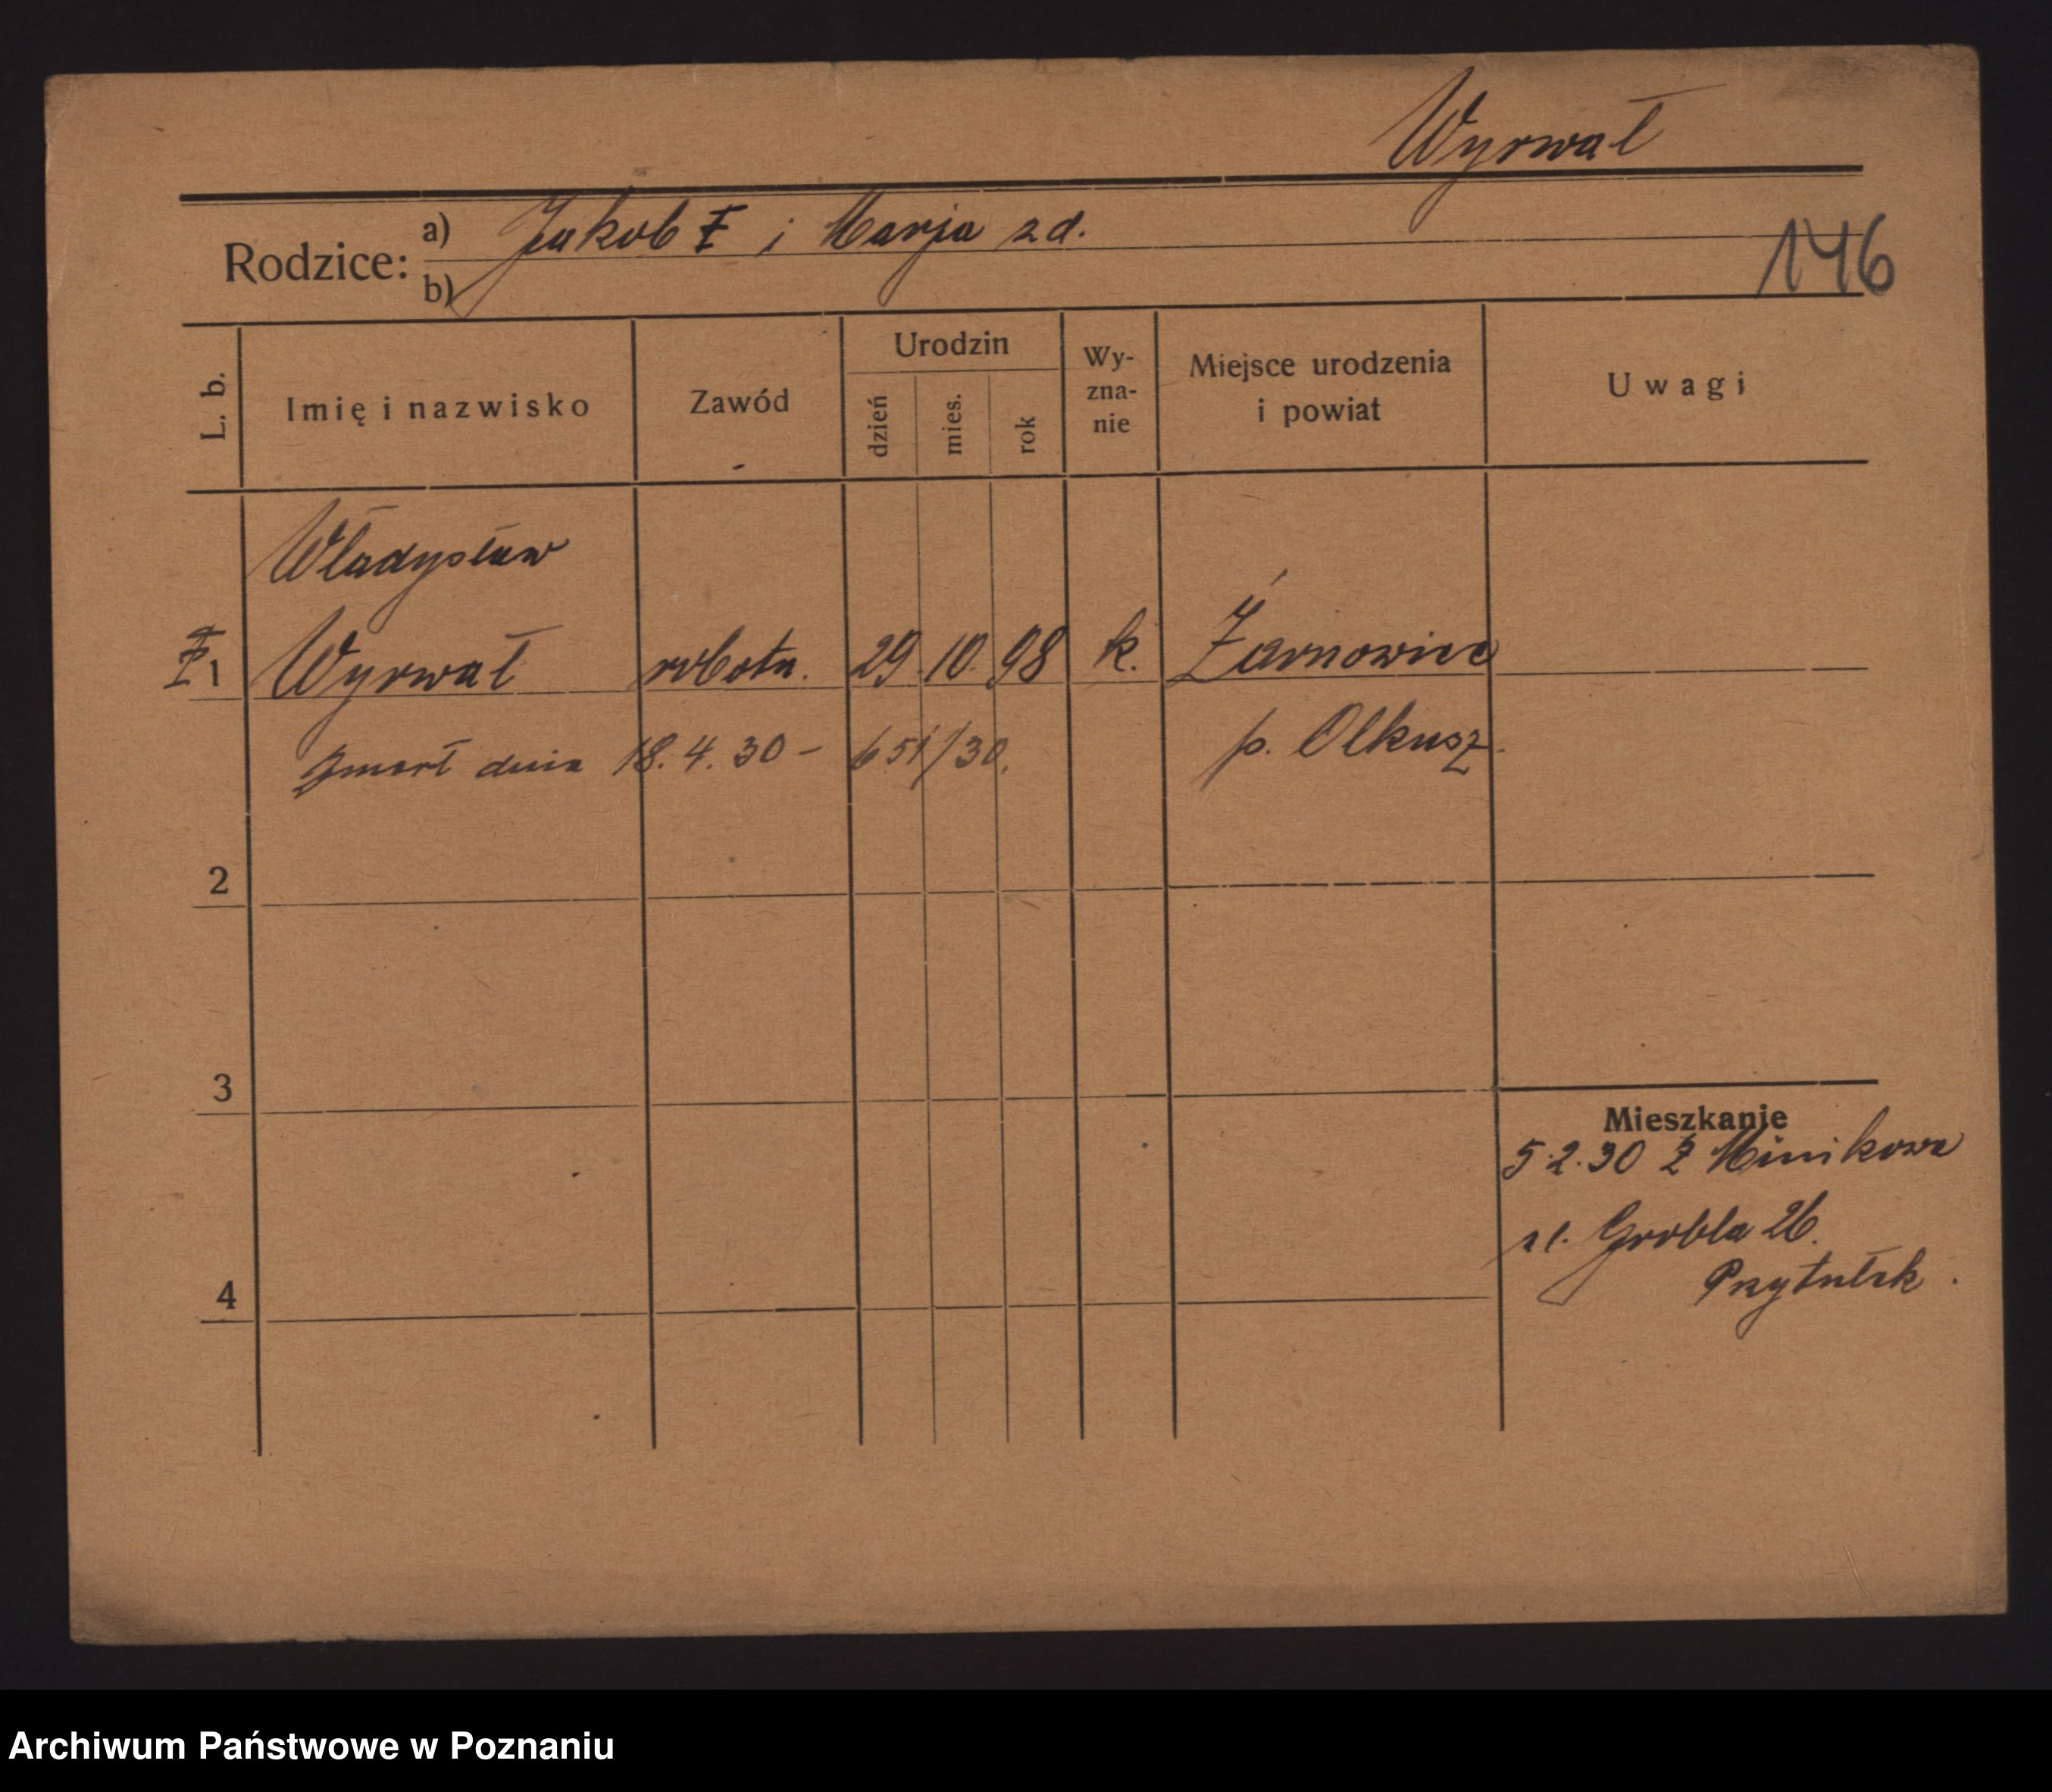 Wyrwał
Rodzice:
a) Jakob ‡ i Marja zd.
b)
146
L. b.
Imię i nazwisko
Zawód
Urodzin
dzień
mies.
rok
Wy-
zna-
nie
Miejsce urodzenia
i powiat
Uwagi
Władysław
1 Wyrwał robotn. 29. 10. 98 k. Żarnowiec
Zmarł dnia 18. 4. 30 - 651/30. p. Olkusz.
2
3
4
Mieszkanie
5.2.30 z Minikowa
ul. Grobla 26.
Przytułek.
Archiwum Państwowe w Poznaniu